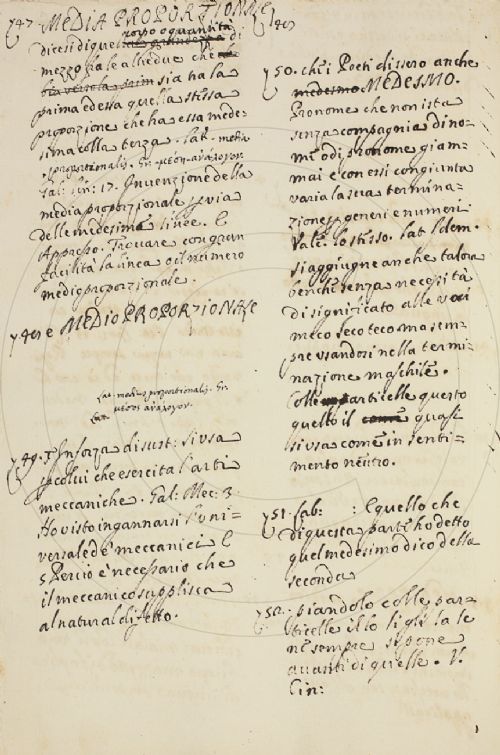 747. MEDIA PROPORZIONALE
dicesi di quel corpo o quantità di
mezzo fra le altre due che
sia tra la
prima ed essa quella stessa
proporzione che ha essa mede=
sima colla terza. Lat. media
proportionalis. Gr. μέση ἀνάλογον.
Gal: lin: 17. Invenzione della
media proporzionale per via
delle medesime linee. E
Appresso. Trovare con gran
facilità la linea o il numero
medio proporzionale.
748 e MEDIO PROPORZIONALE
Lat. medius proportionalis. Gr.
μέσος ἀνάλογον.
749. In forza di sust: si usa
colui che esercita l'arti
meccaniche. Gal: Mec: 3.
Ho visto ingannarsi l'uni=
versale de' meccanici E
5 Perciò è necessario che
il meccanico supplisca
al natural difetto.
750. chi i Poeti dissero anche
medesmo MEDESMO.
Pronome che non ista
senza compagnia di no=
mi o di pronome giam=
mai e con essi congiunta
varia la sua termina=
zione per generi e numeri
Vale lo stesso. Lat. Idem.
si aggiugne anche talora
benchè senza necessità
di significato alle voci
meco seco teco ma sem=
pre usandosi nella termi=
nazione maschile.
Colle particelle questo
quello il come quasi
si usa come in senti=
mento neutro.
751. Sab: : E quello che
di questa parte ho detto
quel medesimo dico della
seconda
752. piandolo colle par=
ticelle il lo li gli la le
ne sempre si pone
avanti di quelle. V.
Cin: